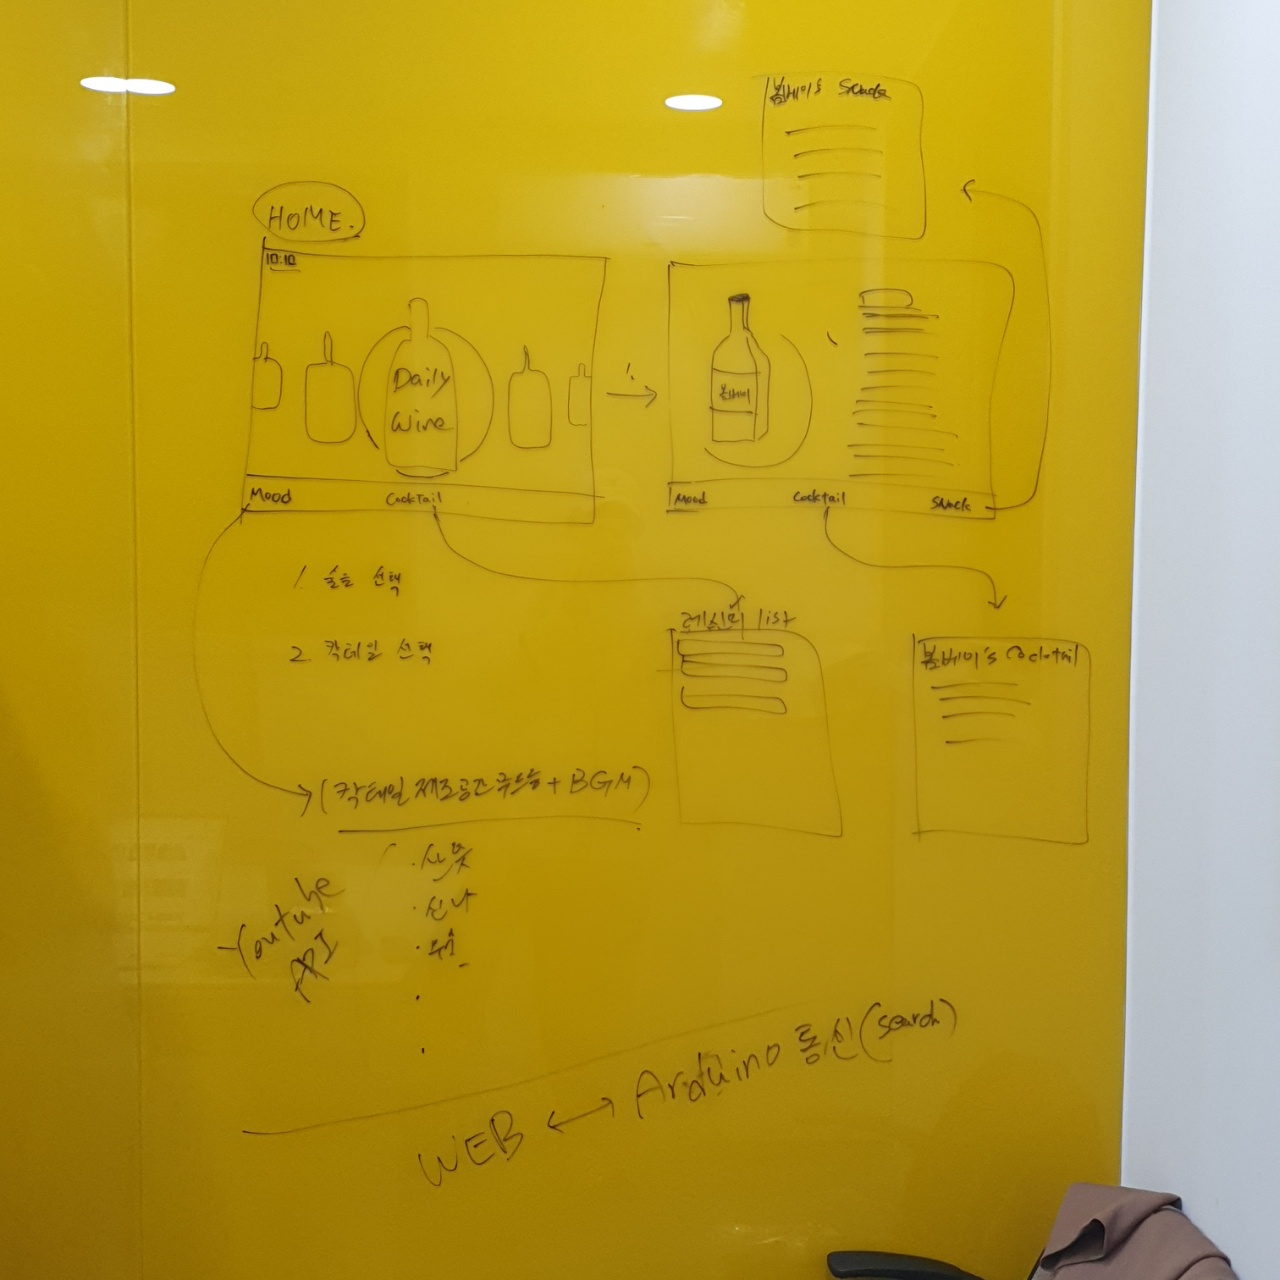 HOME.
10:10
Daily
Wine
Mood
CockTail
1.
봄베이
Mood
Cocktail
Snack
봄베이's Snack
1. 술을 선택
2. 칵테일 선택
레시피 list
봄베이's Cocktail
(칵테일 제조공간 + BGM)
Youtube
API
· 신나
WEB ↔ Arduino 통신 (search)